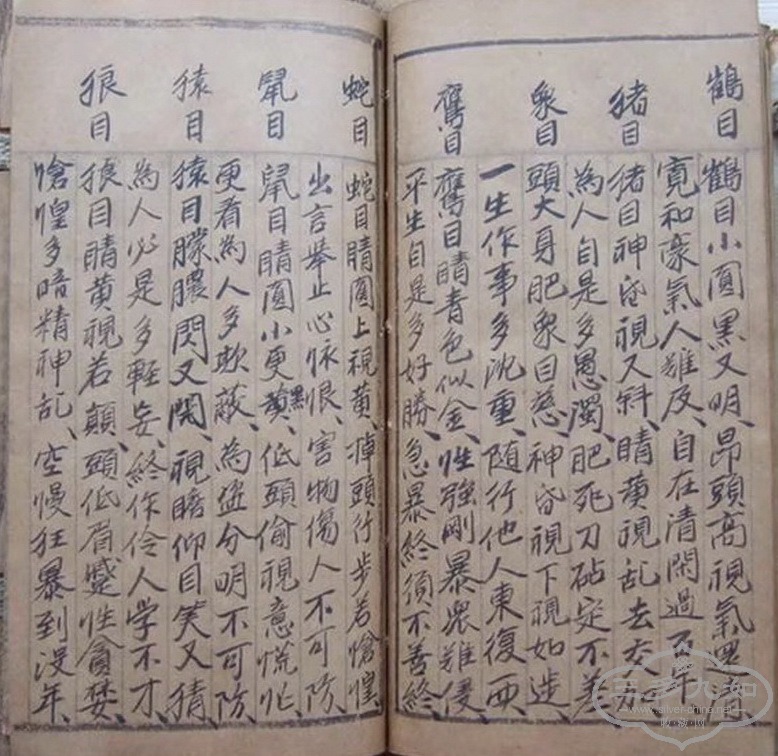 鶴目
鶴目小圓黑又明、昂頭高視氣
寬和豪氣人難及、自在清閑過年
猪目
猪目神昏視又斜、睛黄視乱去交
為人自是多愚濁、肥死刀砧定不差
象目
頭大身肥象目慈、神昏視下視如迷
一生作事多沈重、随行他人東復西
鷹目
鷹目睛青色似金、性強剛暴衆難侵
平生自是多好勝、急暴終須不善終
蛇目
蛇目睛圓上視黄、掉頭行步若愴惶、
出言舉止心恨、害物傷人不可防、
鼠目
鼠目睛圓小更黑、低頭偷視意慌忙、
更看為人多欺蔽、為盗分明不可防、
猿目
猿目朦膿閃又開、視瞻仰目笑又猜
為人必是多輕妄、終作伶人学不才、
狼目
狼目睛黄視若顛、頭低眉蹙性貪婪、
愴惶多暗精神乱、空慢狂暴到没年、
三多九如
www.silver-china.net